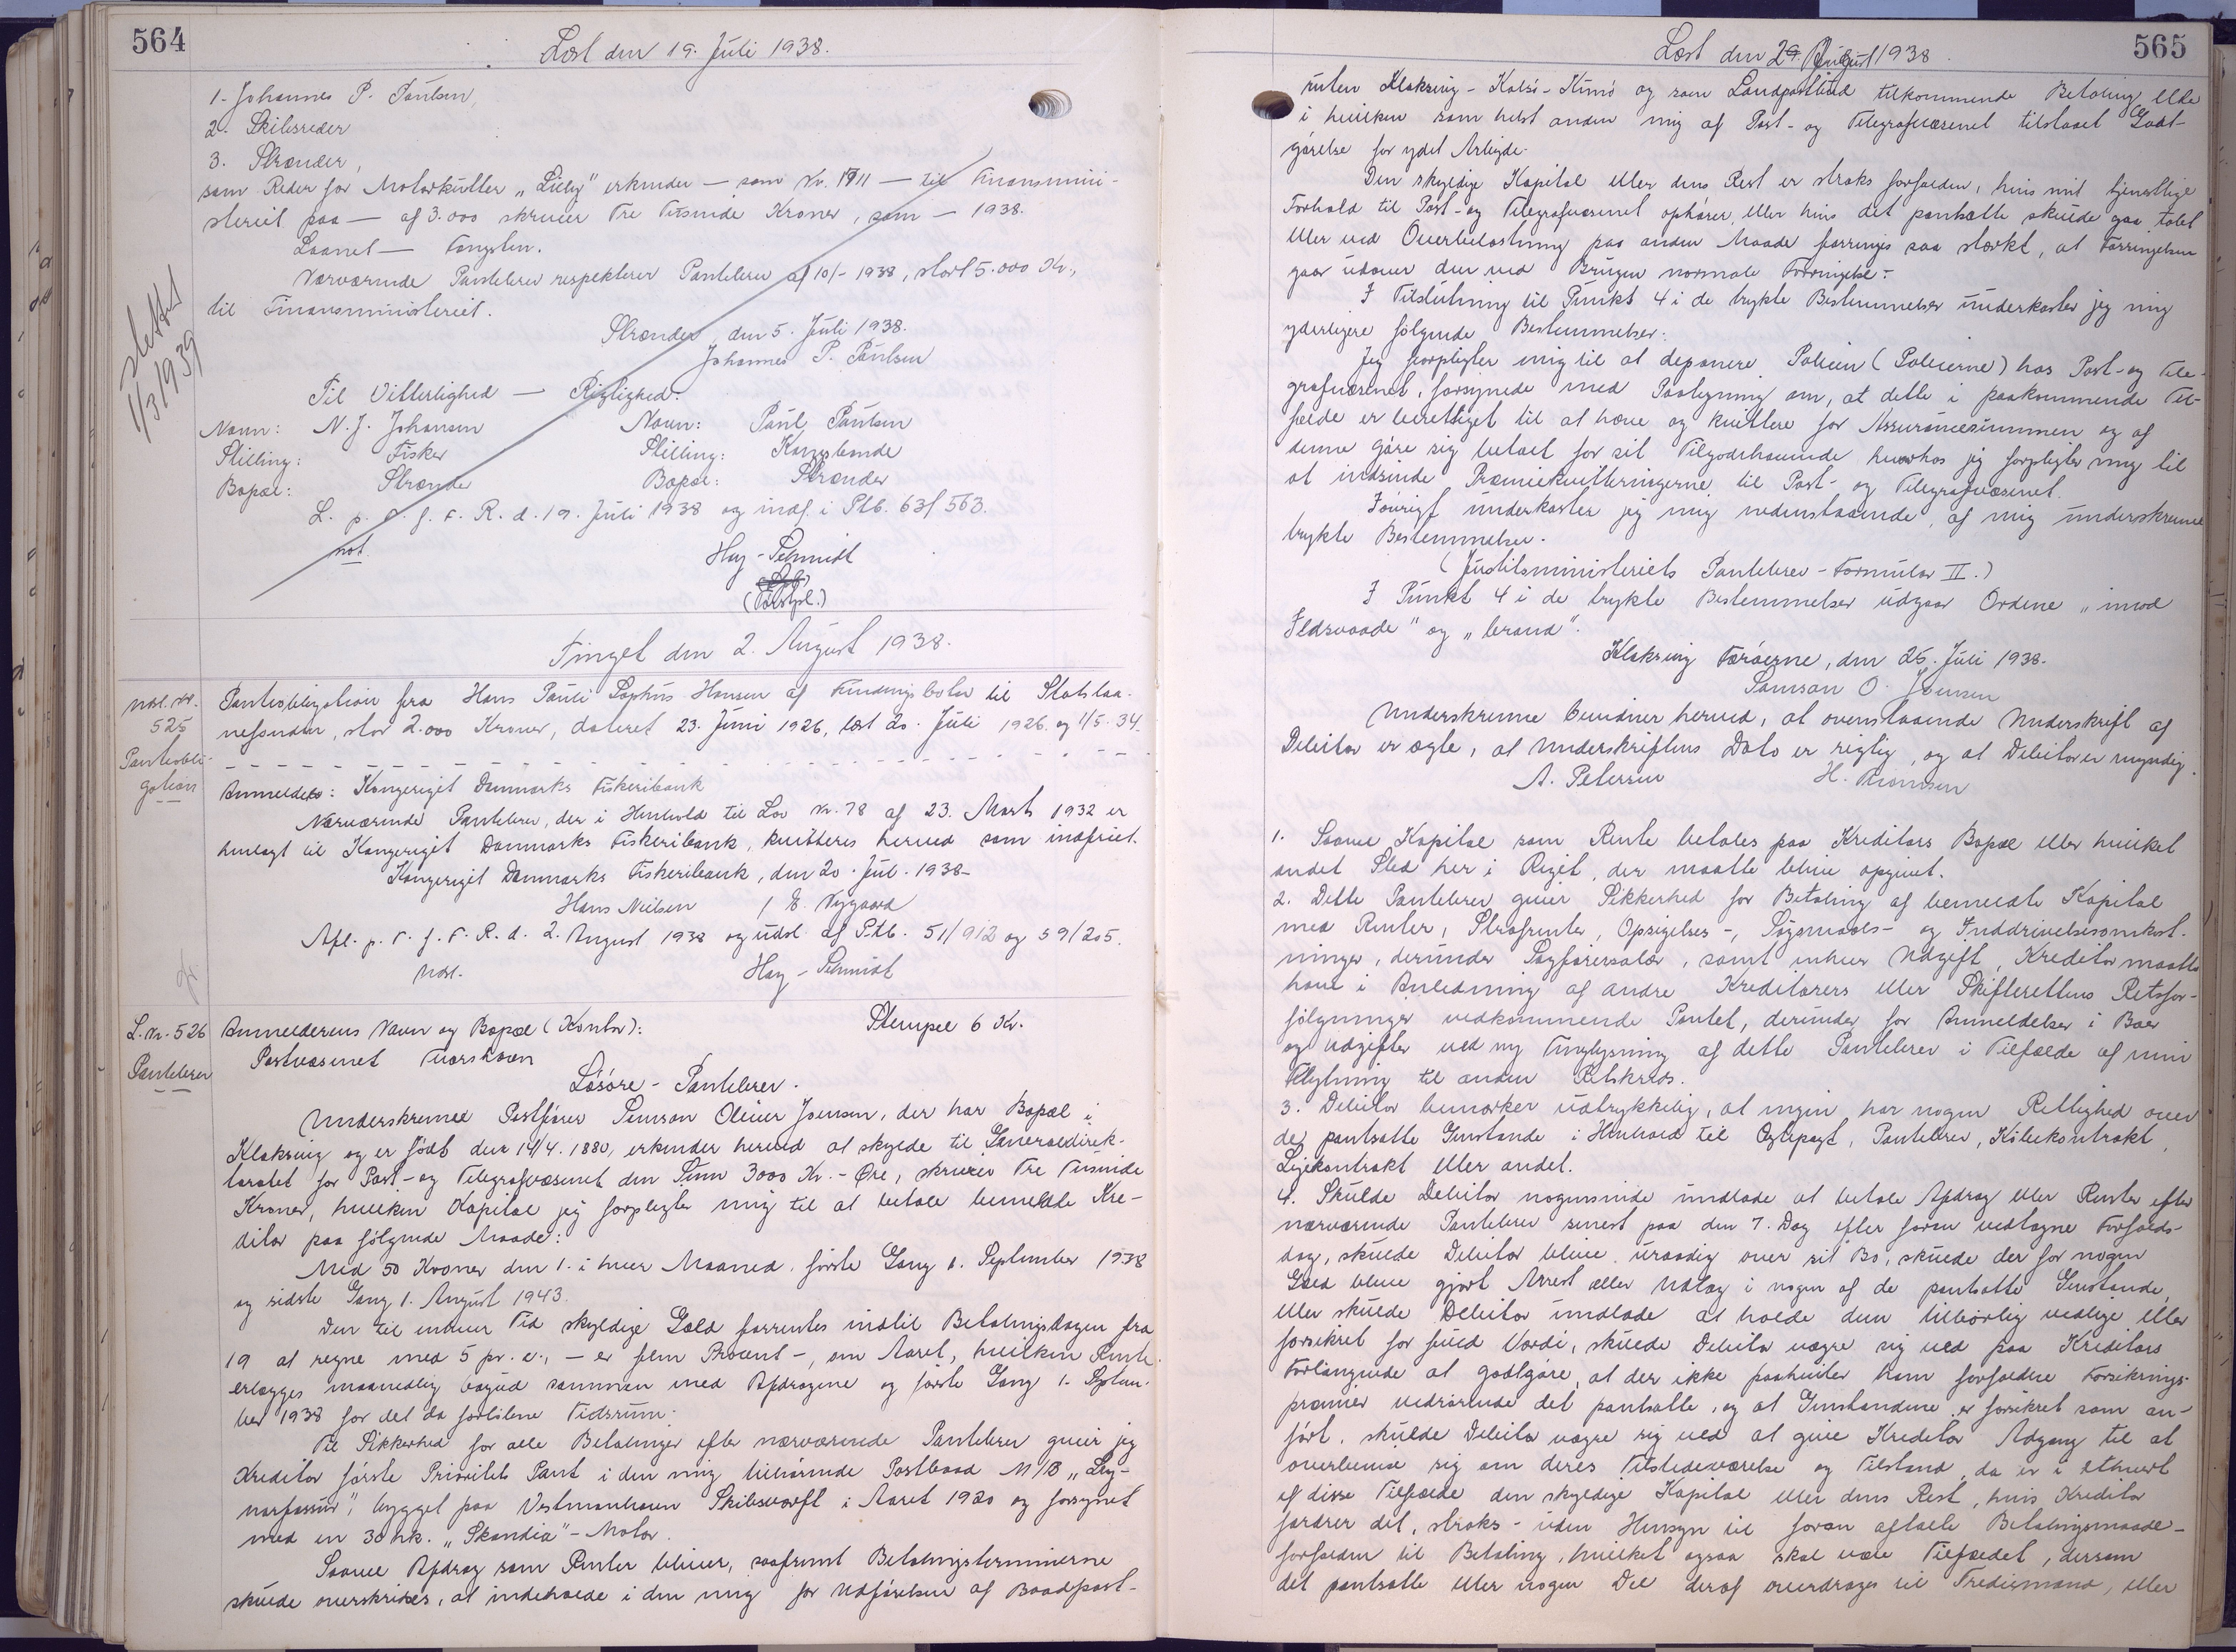 564
Læst den 19. Juli 1938.
1. Johannes P. Paulsen,
2. Skibsreder
3. Strænder,
som Reder for Motorkutter „Lilly" erkender — som Nr. 1911 — til Finansmini-
steriet paa — af 3.000 skriver Tre Tusinde Kroner, som — 1938.
Laanet — Fangsten.
Nærværende Pantebrev respekterer Pantebrev af 10/- 1938, stort 5.000 Kr.,
til Finansministeriet.
Strænder, den 5. Juli 1938.
Johannes P. Paulsen
Til Vitterlighed — Rigtighed:
Navn: N. J. Johansen Navn: Paul Paulsen
Stilling: Fisker Stilling: Kongsbonde
Bopæl: Strænder Bopæl: Strænder
L. p. T. f. F. R. d. 19. Juli 1938 og indf. i Ptb. 63/563.
not.
Hay-Schmidt
(Forstpl.)
slettet
1/3 1939
Tinget den 2. August 1938.
Udsl. Nr.
525
Pantobli-
gation
Pantobligation fra Hans Pauli Sophus Hansen af Fundingsbotn til Statslaa-
nefonden, stor 2.000 Kroner, dateret 23. Juni 1926, læst 20. Juli 1926 og 1/5. 34.
Anmelder: Kongeriget Danmarks Fiskeribank
Nærværende Pantebrev, der i Henhold til Lov Nr. 78 af 23. Marts 1932 er
henlagt til Kongeriget Danmarks Fiskeribank, kvitteres herved som indfriet.
Kongeriget Danmarks Fiskeribank, den 20. Jul. 1938-
Hans Nielsen / E. Nygaard
Afl. p. T. f. F. R. d. 2. August 1938 og udsl. af Ptb. 51/912 og 59/205.
Udsl. Hay-Schmidt
L. Nr. 526
Pantebrev
Anmelderens Navn og Bopæl (Kontor): Stempel 6 Kr.
Postvæsenet Torshavn
Løsøre-Pantebrev.
Underskrevne Postfører Samson Oliver Joensen, der har Bopæl i
Klaksvig og er født den 14/4. 1880, erkender herved at skylde til Generaldirek-
toratet for Post- og Telegrafvæsenet den Sum 3000 Kr. - Øre, skriver Tre Tusinde
Kroner, hvilken Kapital jeg forpligter mig til at betale bemeldte Kre-
ditor paa følgende Maade:
Med 50 Kroner den 1. i hver Maaned, første Gang 1. September 1938
og sidste Gang 1. August 1943.
Den til enhver Tid skyldige Gæld forrentes indtil Betalingsdagen fra
19 at regne med 5 pr. c., - er fem Procent -, om Aaret, hvilken Rente
erlægges maanedlig bagud sammen med Afdragene og første Gang 1. Septem-
ber 1938 for det da forløbne Tidsrum.
Til Sikkerhed for alle Betalinger efter nærværende Pantebrev giver jeg
Kreditor første Prioritets Pant i den mig tilhørende Postbaad M/B „Ley-
narfossur", bygget paa Vestmanhavn Skibsværft i Aaret 1920 og forsynet
med en 30 hk. „Skandia"-Motor.
Saavel Afdrag som Renter bliver, saafremt Betalingsterminerne
skulde overskrides, at indeholde i den mig for Udførelsen af Baadpost-
565
Læst den 2. August 1938.
ruten Klaksvig - Kalsø - Kunø og som Landpostbud tilkommende Betaling eller
i hvilken som helst anden mig af Post- og Telegrafvæsenet tilstaaet Godt-
gørelse for ydet Arbejde.
Den skyldige Kapital eller dens Rest er straks forfalden, hvis mit tjenstlige
Forhold til Post- og Telegrafvæsenet ophører, eller hvis det pantsatte skulde gaa tabt
eller ved Overbelastning paa anden Maade forringes saa stærkt, at Forringelsen
gaar udover den ved Brugen normale Forringelse.
I Tilslutning til Punkt 4 i de trykte Bestemmelser underkaster jeg mig
yderligere følgende Bestemmelser:
Jeg forpligter mig til at deponere Policen (Policerne) hos Post- og Tele-
grafvæsenet, forsynede med Paategning om, at dette i paakommende Til-
fælde er berettiget til at hæve og kvittere for Assurancesummen og af
denne gøre sig betalt for sit Tilgodehavende hvorhos jeg forpligter mig til
at indsende Præmiekvitteringerne til Post- og Telegrafvæsenet.
Iøvrigt underkaster jeg mig nedenstaaende, af mig underskrevne
trykte Bestemmelser.
(Justitsministeriets Pantebrev-Formular II.)
I Punkt 4 i de trykte Bestemmelser udgaar Ordene „imod
Ildsvaade" og „brand".
Klaksvig Færøerne, den 25. Juli 1938.
Samson O. Joensen
Underskrevne bevidner herved, at ovenstaaende Underskrift af
Debitor er ægte, at Underskriftens Dato er rigtig, og at Debitor er myndig.
A. Petersen H. Thomsen
1. Saavel Kapital som Rente betales paa Kreditors Bopæl eller hvilket
andet Sted her i Riget, der maatte blive opgivet.
2. Dette Pantebrev giver Sikkerhed for Betaling af bemeldte Kapital
med Renter, Strafrenter, Opsigelses-, Søgsmaals- og Inddrivelsesomkost-
ninger, derunder Sagførersalær, samt enhver Udgift, Kreditor maatte
have i Anledning af andre Kreditorers eller Skifterettens Retsfor-
følgninger vedkommende Pantet, derunder for Anmeldelser i Boer
og Udgifter ved ny Tinglysning af dette Pantebrev i Tilfælde af min
Flytning til anden Retskreds.
3. Debitor bemærker udtrykkelig, at ingen har nogen Rettighed over
de pantsatte Genstande i Henhold til Ægtepagt, Pantebrev, Købekontrakt,
Lejekontrakt eller andet.
4. Skulde Debitor nogensinde undlade at betale Afdrag eller Renter efter
nærværende Pantebrev senest paa den 7. Dag efter foran vedtagne Forfalds-
dag, skulde Debitor blive uraadig over sit Bo, skulde der for nogen
Gæld blive gjort Arrest eller Udlæg i nogen af de pantsatte Genstande,
eller skulde Debitor undlade at holde dem tilbørlig vedlige eller
forsikret for fuld Værdi, skulde Debitor vægre sig ved paa Kreditors
Forlangende at godtgøre, at der ikke paahviler ham forfaldne Forsikrings-
præmier vedrørende det pantsatte, og at Genstandene er forsikret som an-
ført, skulde Debitor vægre sig ved at give Kreditor Adgang til at
overbevise sig om deres Tilstedeværelse og Tilstand, da er i ethvert
af disse Tilfælde den skyldige Kapital eller dens Rest, hvis Kreditor
fordrer det, straks - uden Hensyn til foran aftalte Betalingsmaade -
forfalden til Betaling, hvilket ogsaa skal være Tilfældet, dersom
det pantsatte eller nogen Del deraf overdrages til Trediemand, eller